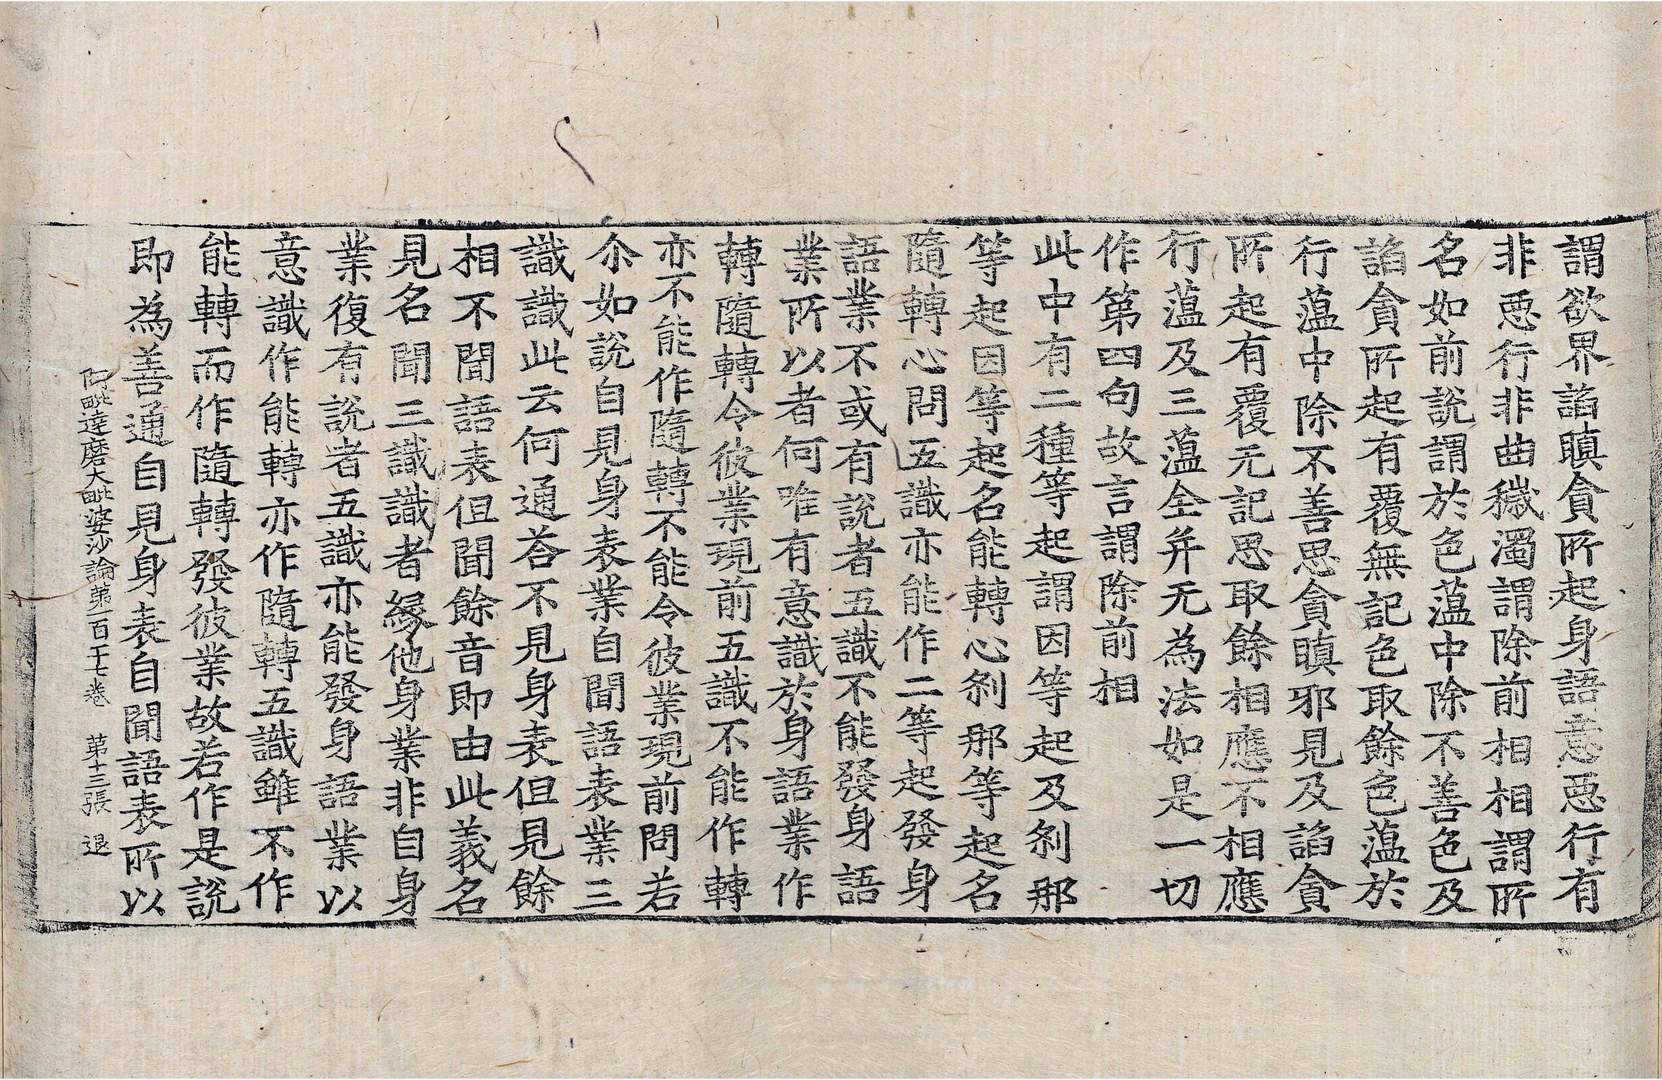 謂欲界諂瞋貪所起身語意惡行有
非惡行非曲穢濁謂除前相相謂所
名如前說謂於色薀中除不善色及
諂貪所起有覆無記色取餘色薀於
行薀中除不善思貪瞋邪見及諂貪
所起有覆无記思取餘相應不相應
行薀及三薀全并无為法如是一切
作第四句故言謂除前相
此中有二種等起謂因等起及刹那
等起因等起名能轉心刹那等起名
隨轉心問五識亦能作二等起發身
語業不或有說者五識不能發身語
業所以者何唯有意識於身語業作
轉隨轉令彼業現前五識不能作轉
亦不能作隨轉不能令彼業現前問若
尒如說自見身表業自聞語表業三
識識此云何通荅不見身表但見餘
相不聞語表但聞餘音即由此義名
見名聞三識識者緣他身業非自身
業復有說者五識亦能發身語業以
意識作能轉亦作隨轉五識雖不作
能轉而作隨轉發彼業故若作是說
即為善通自見身表自聞語表所以
阿毗達磨大毗婆沙論第一百十七卷 第十三張 退